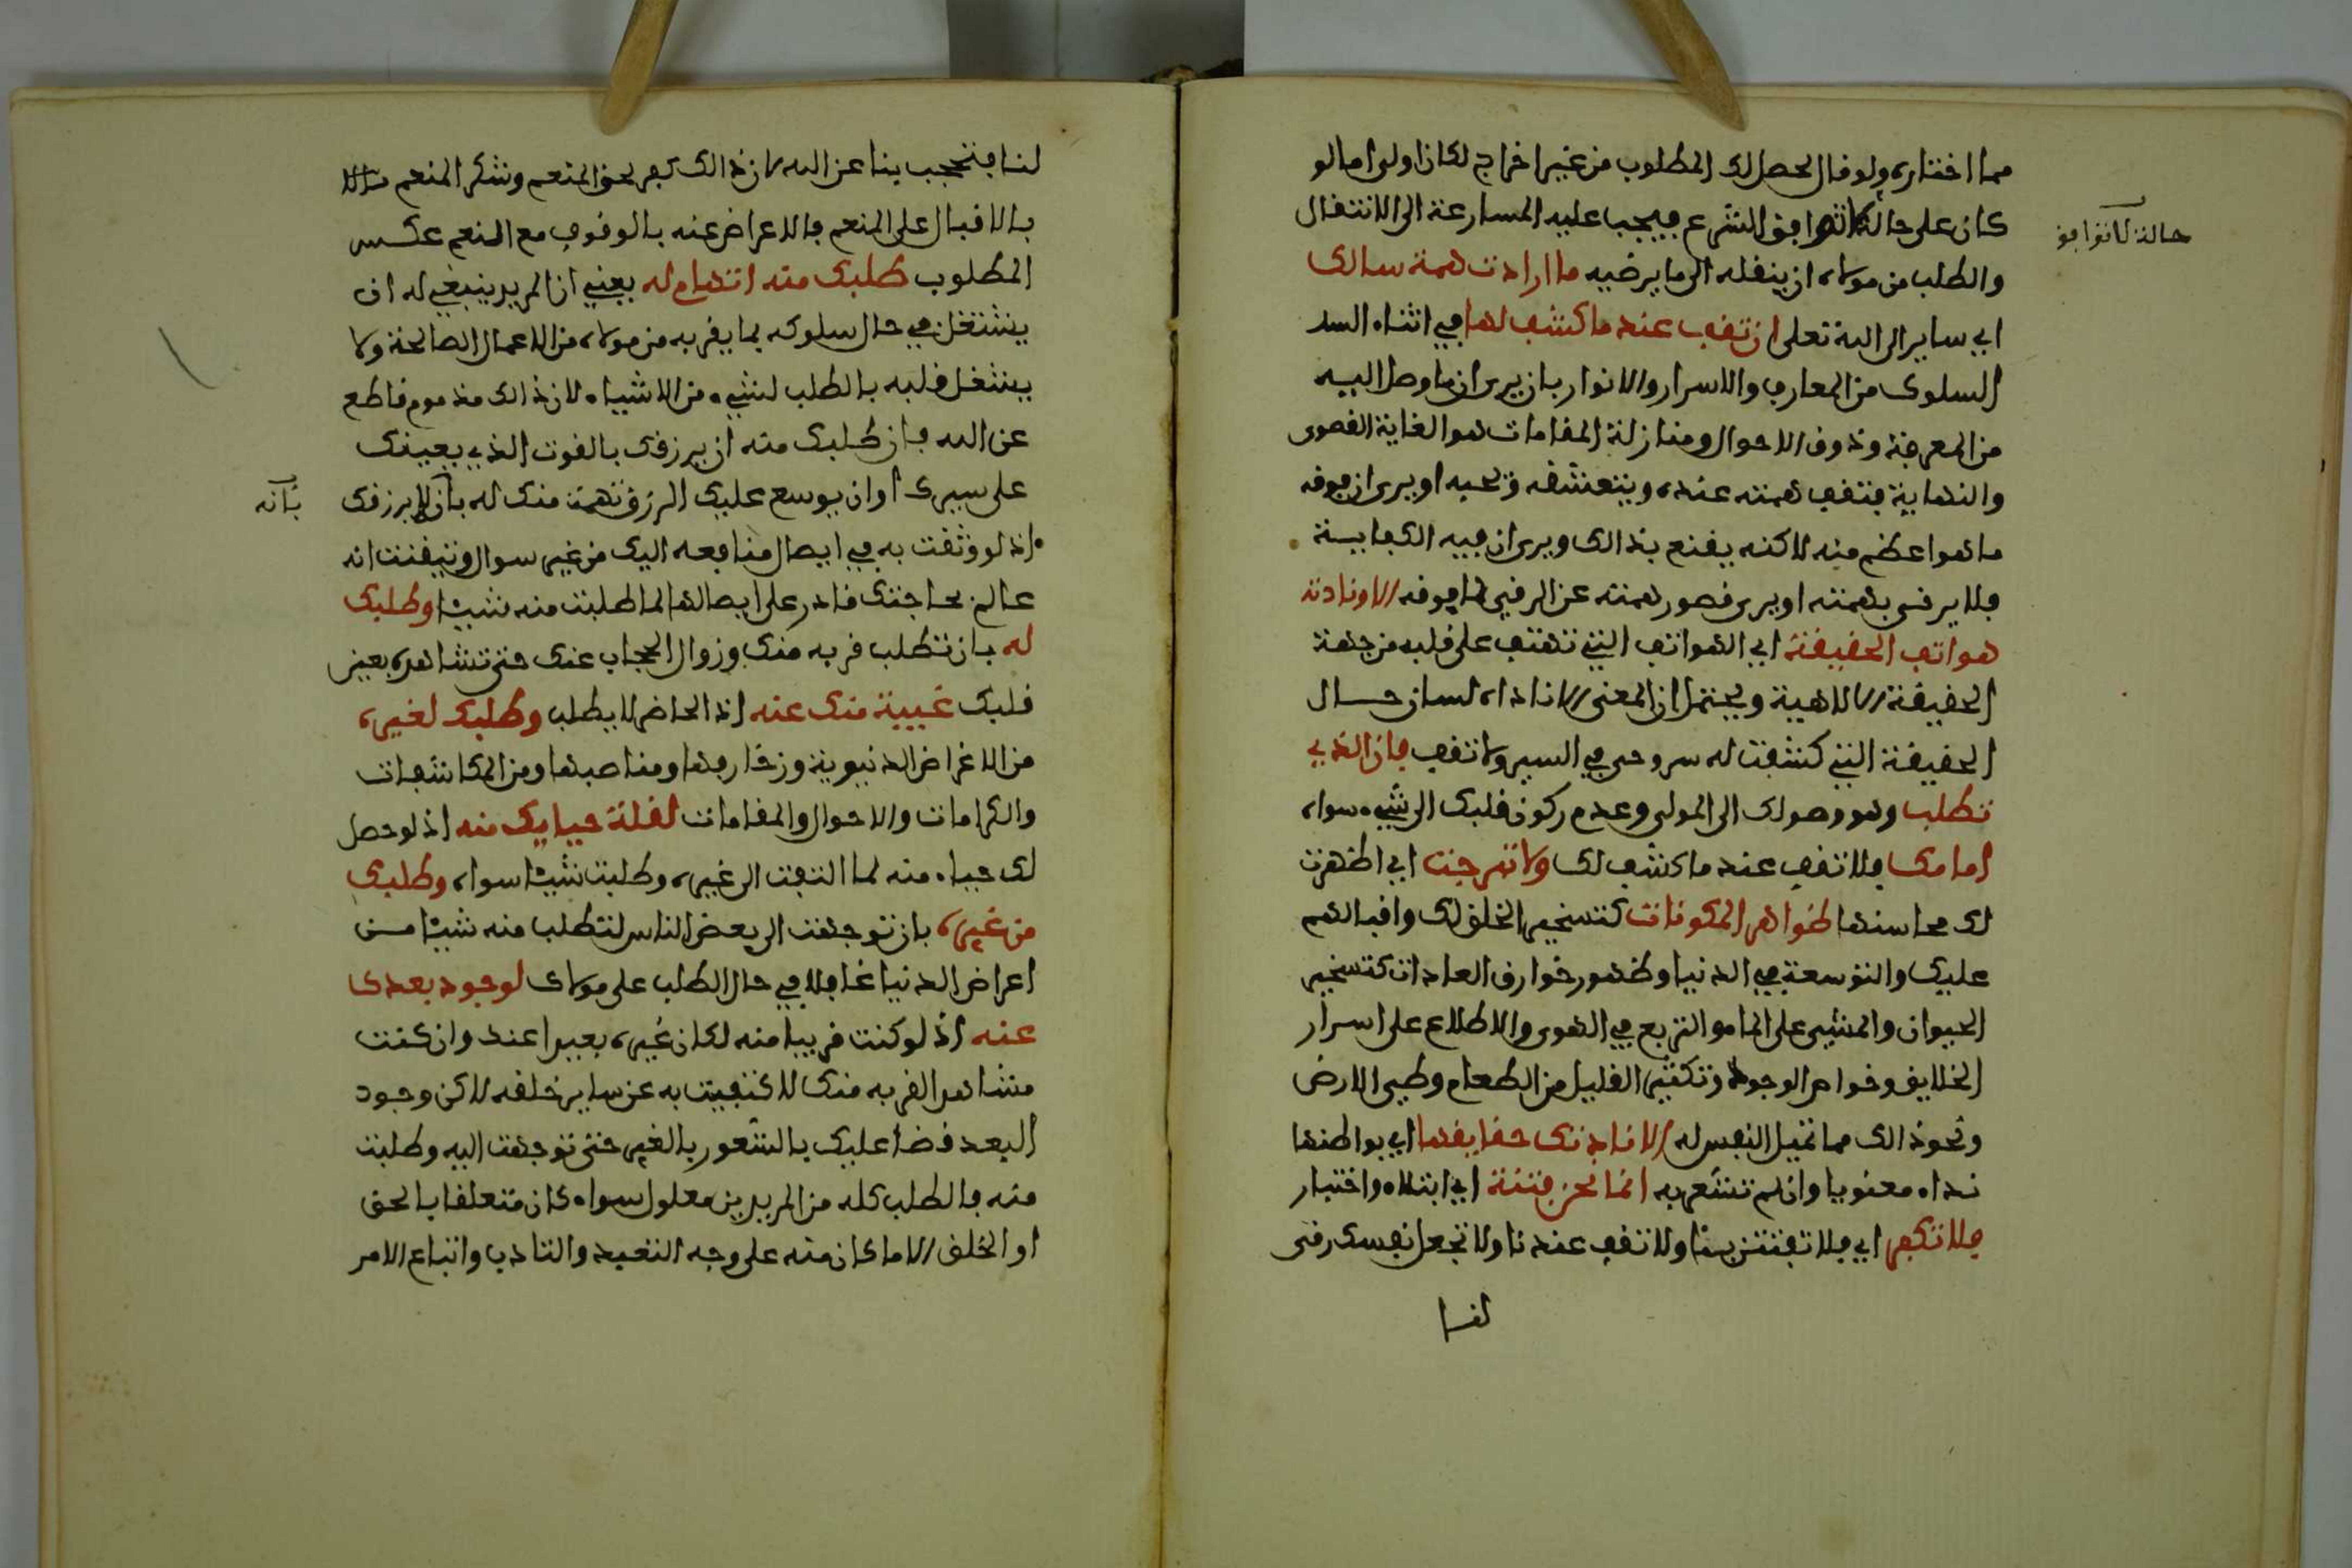 مما اختاره ولو قال لحصل لك المطلوب من غير اخراج لكان اولى اما لو
كان على حالة لا توافق الشرع فيجب عليه المسارعة الى الانتقال
حالة لا توافق
والطلب من مولاه ان ينقله الى ما يرضيه ما ارادت همة سالك
اي ساير الى الله تعلى ان تقف عند ما كشف لها في اثناء السد
السلوك من المعارف والاسرار والانوار بان يرى ان ما وصل اليه
من المعرفة وذوق الاحوال ومنازلة المقامات هو الغاية القصوى
والنهاية فتقف همته عنده ويتعشقه ويحبه او يرى ان فوقه
ما هو اعظم منه لاكنه يقنع بذالك ويرى ان فيه الكفاية
فلا يرقى بهمته او يرى قصور همته عن الرقي لما فوقه الا ونادته
هواتف الحقيقة اي الهواتف التي تهتف على قلبه من جهة
الحقيقة الالاهية ويحتمل ان المعنى الا ناداه لسان حال
الحقيقة التي كشفت له سر وجد في السير ولا تقف فان الذي
تطلب وهو وصولك الى المولى وعدم ركون قلبك الى شيء سواه
امامك فلا تقف عند ما كشف لك ولا تبرجت اي اظهرت
لك محاسنها ظواهر المكونات كتسخير الخلق لك واقبالهم
عليك والتوسعة في الدنيا وظهور خوارق العادات كتسخير
الحيوان والمشي على الماء والتربع في الهوى والاطلاع على اسرار
الخلايق وخواص الوجود وتكثير القليل من الطعام وطي الارض
ونحو ذالك مما تميل النفس له الا نادتك حقايقها اي بواطنها
نداء معنويا وان لم تشعر به انما نحن فتنة اي ابتلاء واختبار
فلا تكفر اي فلا تفتتن بنا ولا تقف عندنا ولا تجعل نفسك رقى
لنا
لنا فتحجب بنا عن الله لان ذالك كفر لحق المنعم وشكر المنعم
بالاقبال على المنعم فالاعراض عنه بالوقوف مع النعم عكس
المطلوب طلبك منه اتهام له يعني ان المريد ينبغي له ان
يشتغل في حال سلوكه بما يقربه من مولاه من الاعمال الصالحة ولا
يشغل قلبه بالطلب لشيء من الاشياء لان ذالك مذموم قاطع
عن الله فان طلبك منه ان يرزقك بالقوت الذي يعينك
على سيرك او ان يوسع عليك الرزق تهمة منك له بان لا يرزقك
بأنه
اذ لو وثقت به في ايصال منافعه اليك من غير سوال وتيقنت انه
عالم بحاجتك قادر على ايصالها لما طلبت منه شيئا وطلبك
له بان تطلب قربه منك وزوال الحجاب عنك حتى تشاهده بعين
قلبك غيبة منك عنه اذ الحاضر لا يطلب وطلبك لغيره
من الاغراض الدنيوية وزخارفها ومناصبها ومن المكاشفات
والكرامات والاحوال والمقامات لقلة حيايك منه اذ لو حصل
لك حياء منه لما التفت الى غيره وطلبت شيئا سواه وطلبك
من غيره بان توجهت الى بعض الناس لتطلب منه شيئا من
اعراض الدنيا غافلا في حال الطلب على مولاك لوجود بعدك
عنه اذ لو كنت قريبا منه لكان غيره بعيدا عند وان كنت
مشاهد القربه منك لاكتفيت به عن ساير خلقه لاكن وجود
البعد قضا عليك بالشعور بالغير حتى توجهت اليه وطلبت
منه فالطلب كله من المريدين معلول سواء كان متعلقا بالحق
او الخلق الا ما كان منه على وجه التعبد والتادب واتباع الامر